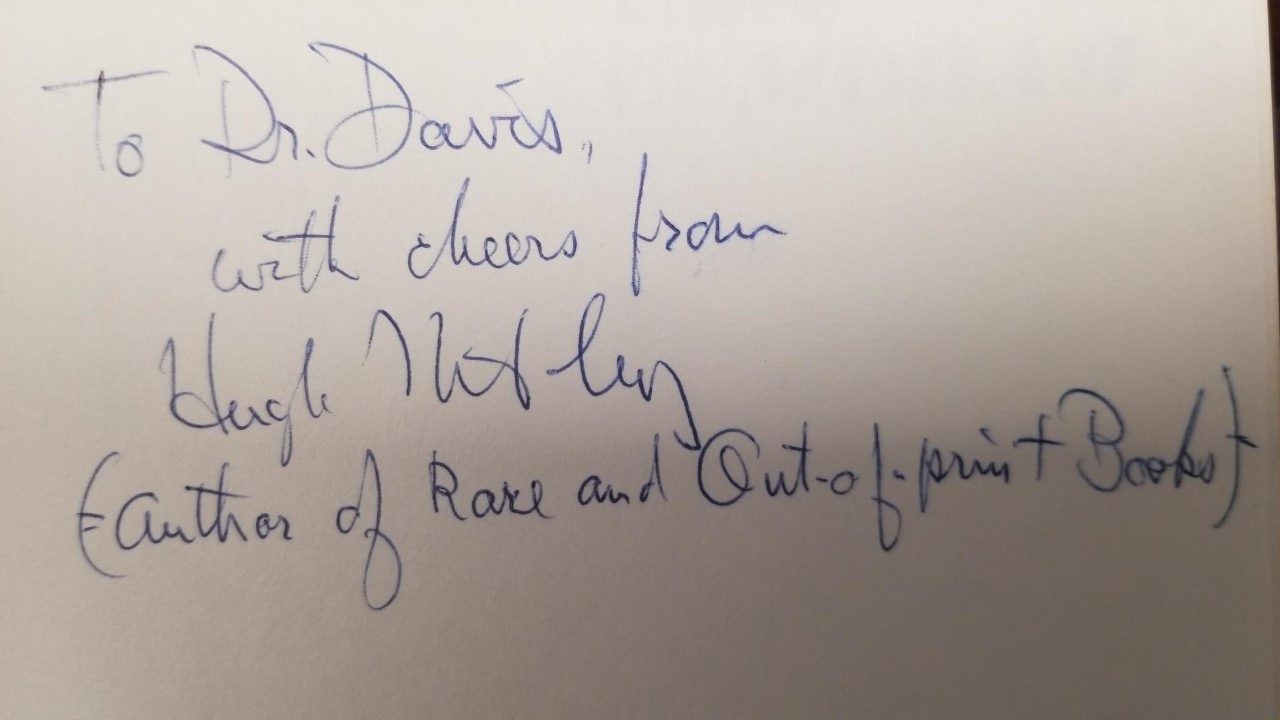 To Dr. Davis,
with cheers from
Hugh
(author of Rare and Out-of-print Books)